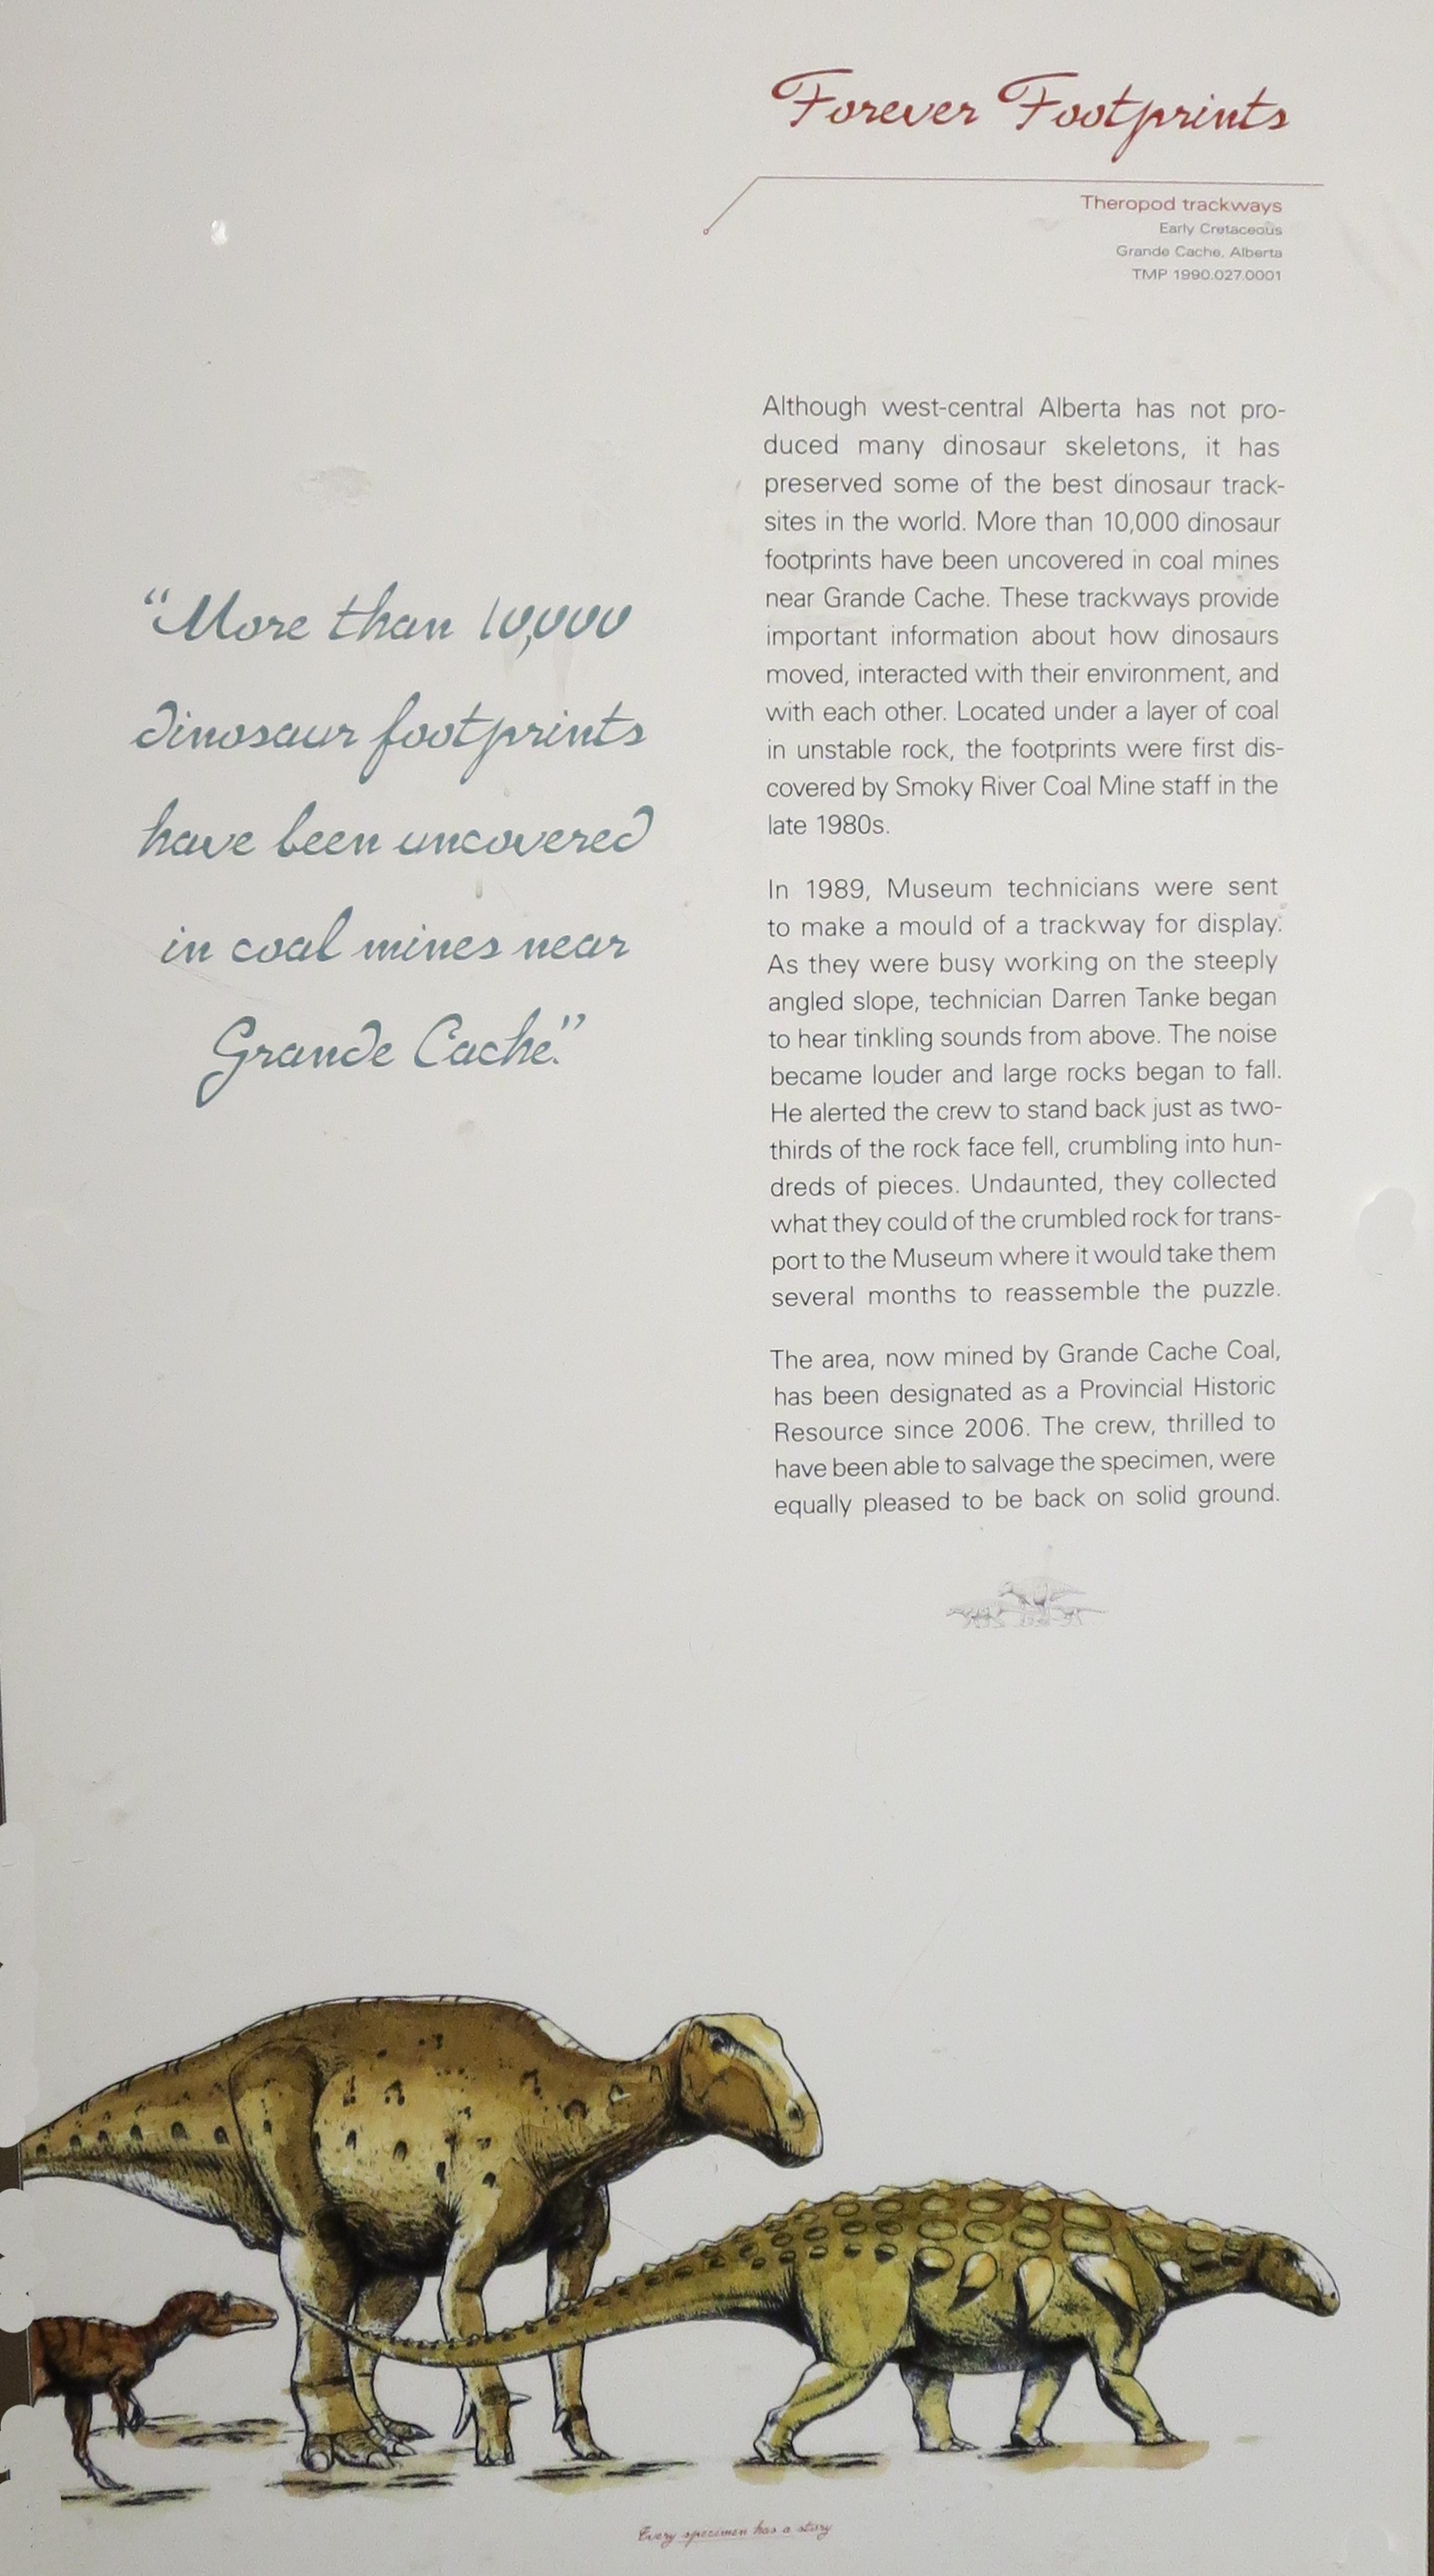 Forever Footprints
Theropod trackways
Early Cretaceous
Grande Cache, Alberta
TMP 1990.027.0001
"More than 10,000
dinosaur footprints
have been uncovered
in coal mines near
Grande Cache."
Although west-central Alberta has not pro-
duced many dinosaur skeletons, it has
preserved some of the best dinosaur track-
sites in the world. More than 10,000 dinosaur
footprints have been uncovered in coal mines
near Grande Cache. These trackways provide
important information about how dinosaurs
moved, interacted with their environment, and
with each other. Located under a layer of coal
in unstable rock, the footprints were first dis-
covered by Smoky River Coal Mine staff in the
late 1980s.
In 1989, Museum technicians were sent
to make a mould of a trackway for display.
As they were busy working on the steeply
angled slope, technician Darren Tanke began
to hear tinkling sounds from above. The noise
became louder and large rocks began to fall.
He alerted the crew to stand back just as two-
thirds of the rock face fell, crumbling into hun-
dreds of pieces. Undaunted, they collected
what they could of the crumbled rock for trans-
port to the Museum where it would take them
several months to reassemble the puzzle.
The area, now mined by Grande Cache Coal,
has been designated as a Provincial Historic
Resource since 2006. The crew, thrilled to
have been able to salvage the specimen, were
equally pleased to be back on solid ground.
Every specimen has a story